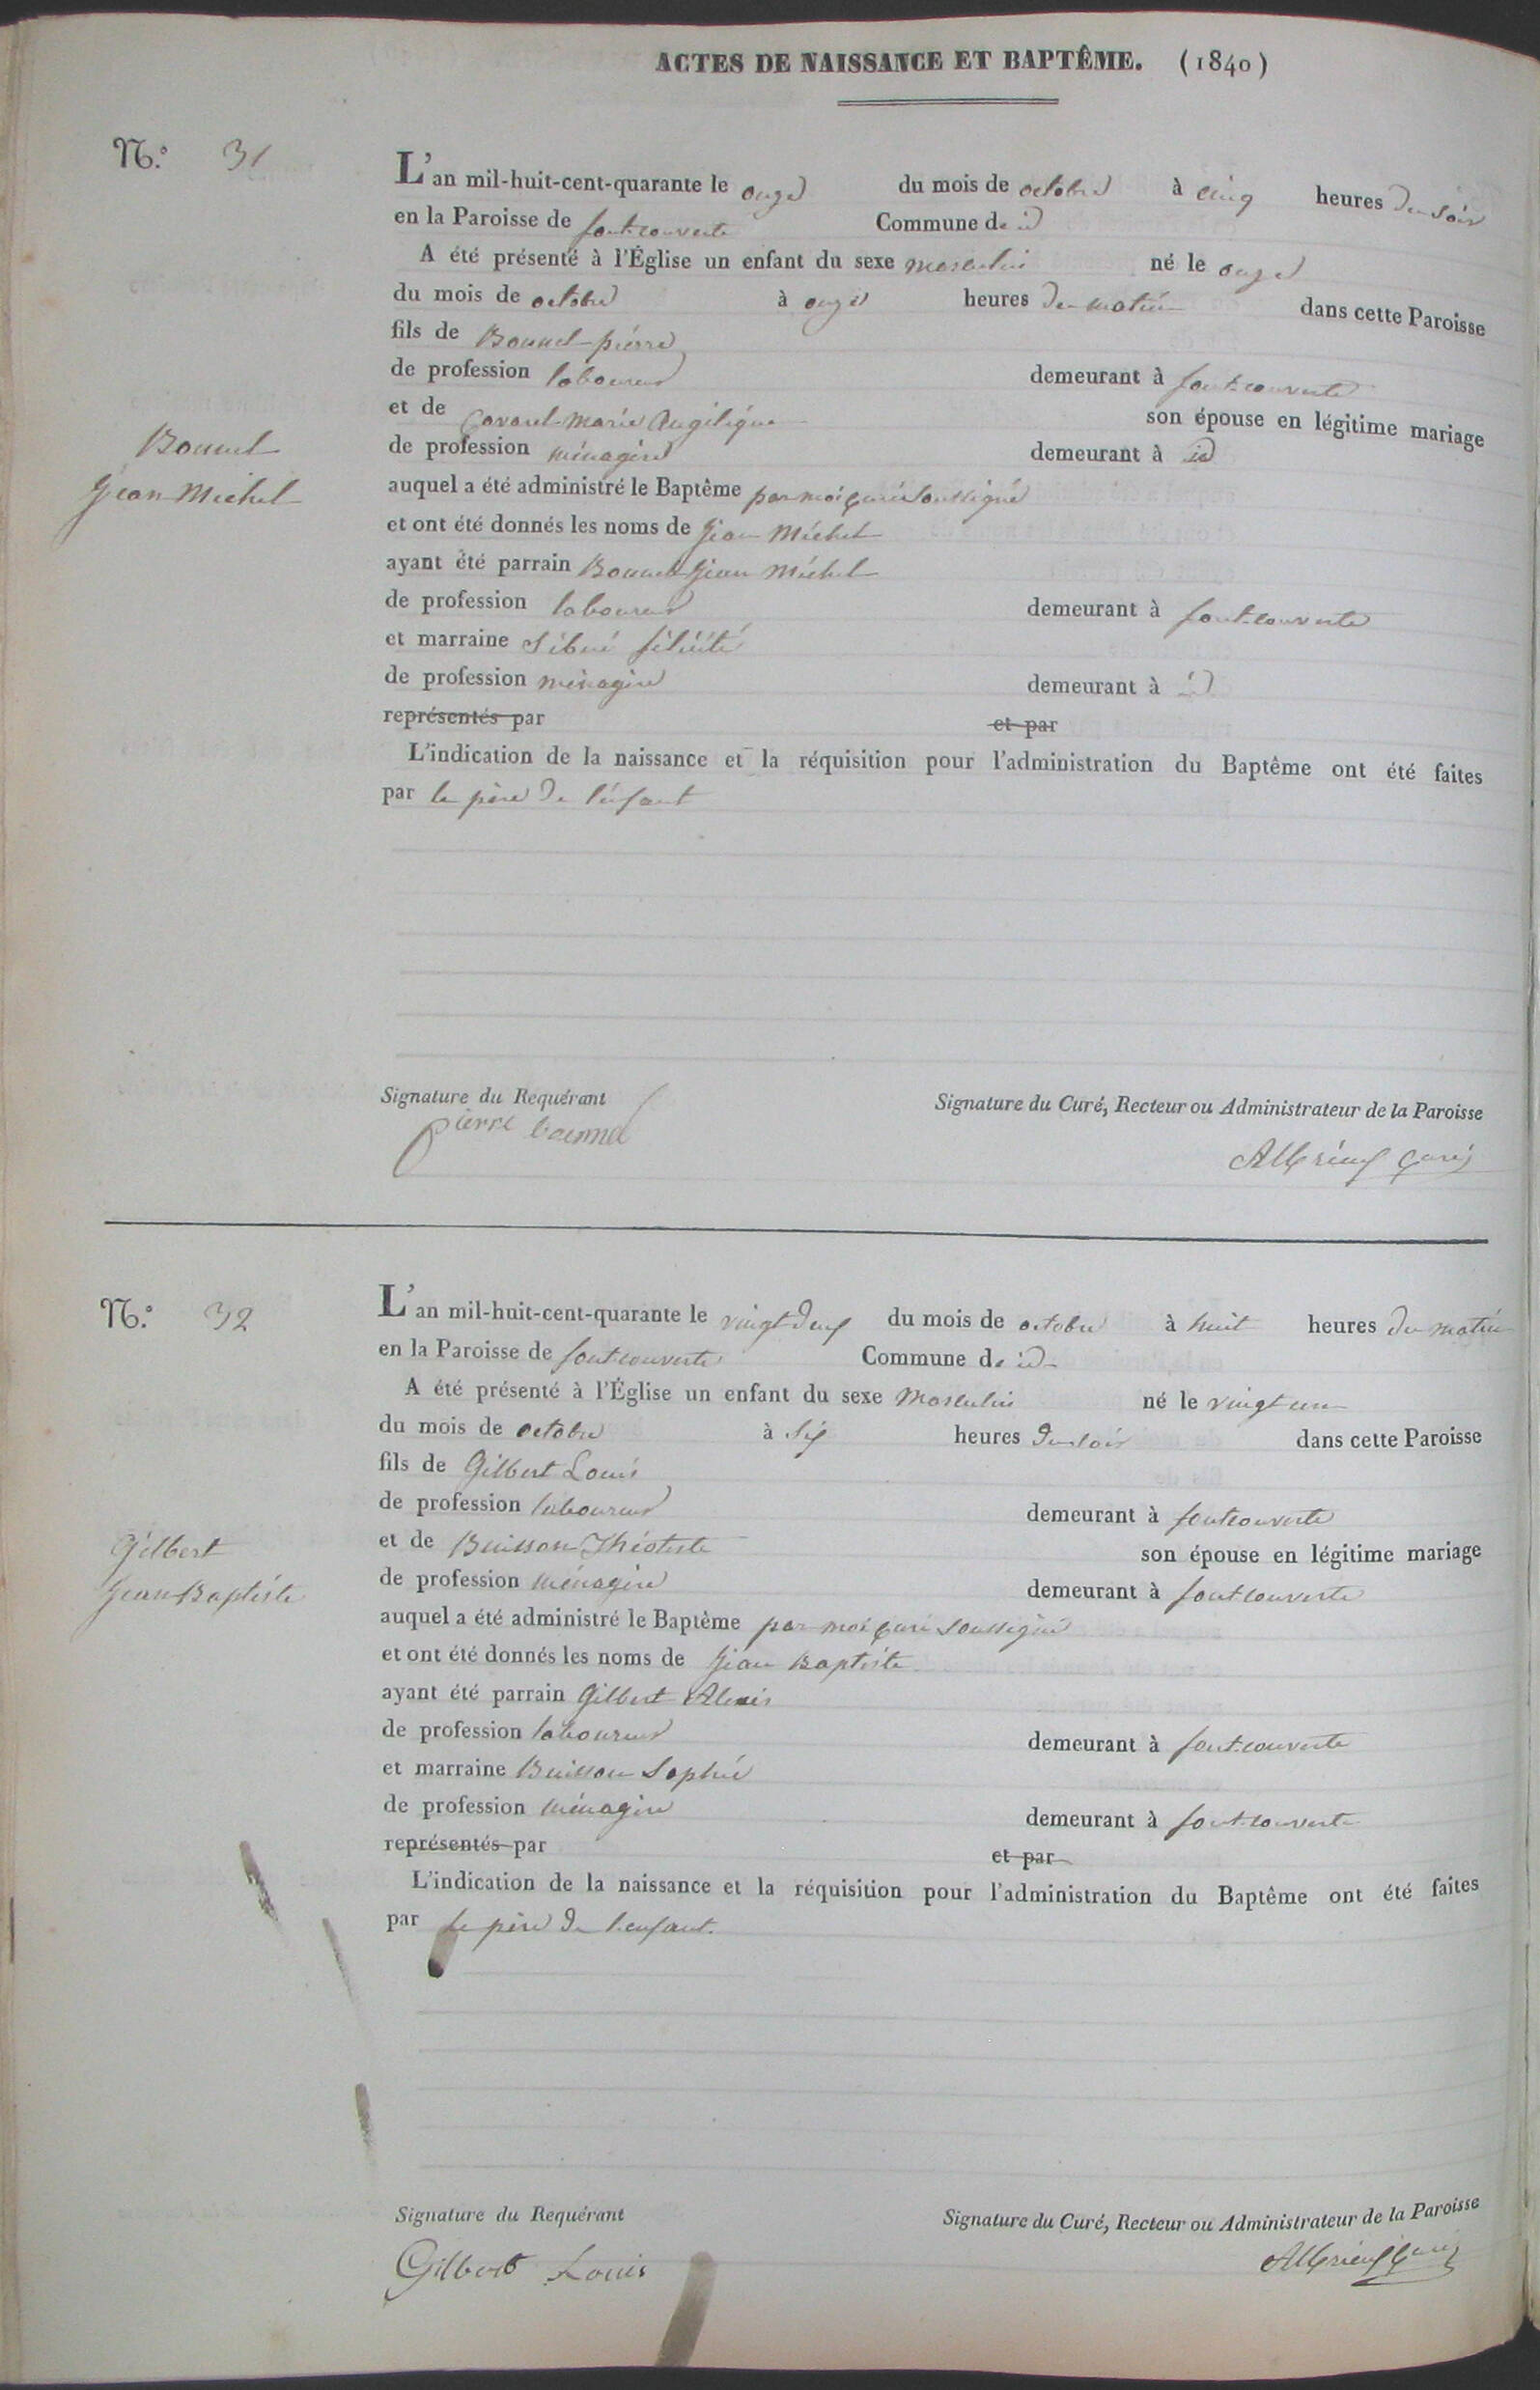 ACTES DE NAISSANCE ET BAPTÊME. (1840)
N.º 31
L'an mil-huit-cent-quarante le onze du mois de octobre à cinq heures du soir
en la Paroisse de fontcouverte Commune de id
A été présenté à l'Église un enfant du sexe masculin né le onze
du mois de octobre à onze heures du matin dans cette Paroisse
fils de Bonnel pierre
de profession laboureur demeurant à fontcouverte
et de Covarel Marie Angélique son épouse en légitime mariage
Bonnel
de profession ménagère demeurant à id
Jean Michel
auquel a été administré le Baptême par moi curé soussigné
et ont été donnés les noms de Jean Michel
ayant été parrain Bonnel Jean Michel
de profession laboureur demeurant à fontcouverte
et marraine félicité
de profession ménagère demeurant à id
représentés par et par
L'indication de la naissance et la réquisition pour l'administration du Baptême ont été faites
par le père de l'enfant
Signature du Requérant Signature du Curé, Recteur ou Administrateur de la Paroisse
pierre bonnel
Albrieux curé
N.º 32
L'an mil-huit-cent-quarante le vingt deux du mois de octobre à huit heures du matin
en la Paroisse de fontcouverte Commune de id
A été présenté à l'Église un enfant du sexe Masculin né le vingt un
du mois de octobre à six heures du soir dans cette Paroisse
fils de Gilbert Louis
de profession laboureur demeurant à fontcouverte
et de Buisson Théotiste son épouse en légitime mariage
Gilbert
de profession ménagère demeurant à fontcouverte
Jean Baptiste
auquel a été administré le Baptême par moi curé soussigné
et ont été donnés les noms de Jean Baptiste
ayant été parrain Gilbert Alexis
de profession laboureur demeurant à fontcouverte
et marraine Buisson Sophie
de profession ménagère demeurant à fontcouverte
représentés par et par
L'indication de la naissance et la réquisition pour l'administration du Baptême ont été faites
par le père de l'enfant.
Signature du Requérant Signature du Curé, Recteur ou Administrateur de la Paroisse
Gilbert Louis
Albrieux curé